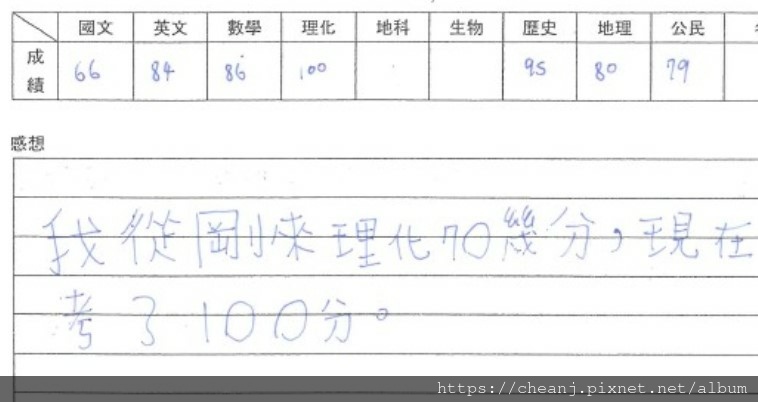 國文 英文 數學 理化 地科 生物 歷史 地理 公民
成績 66 84 86 100 95 80 79
感想
我從剛來理化70幾分,現在
考了100分。
https://cheanj.pixnet.net/album